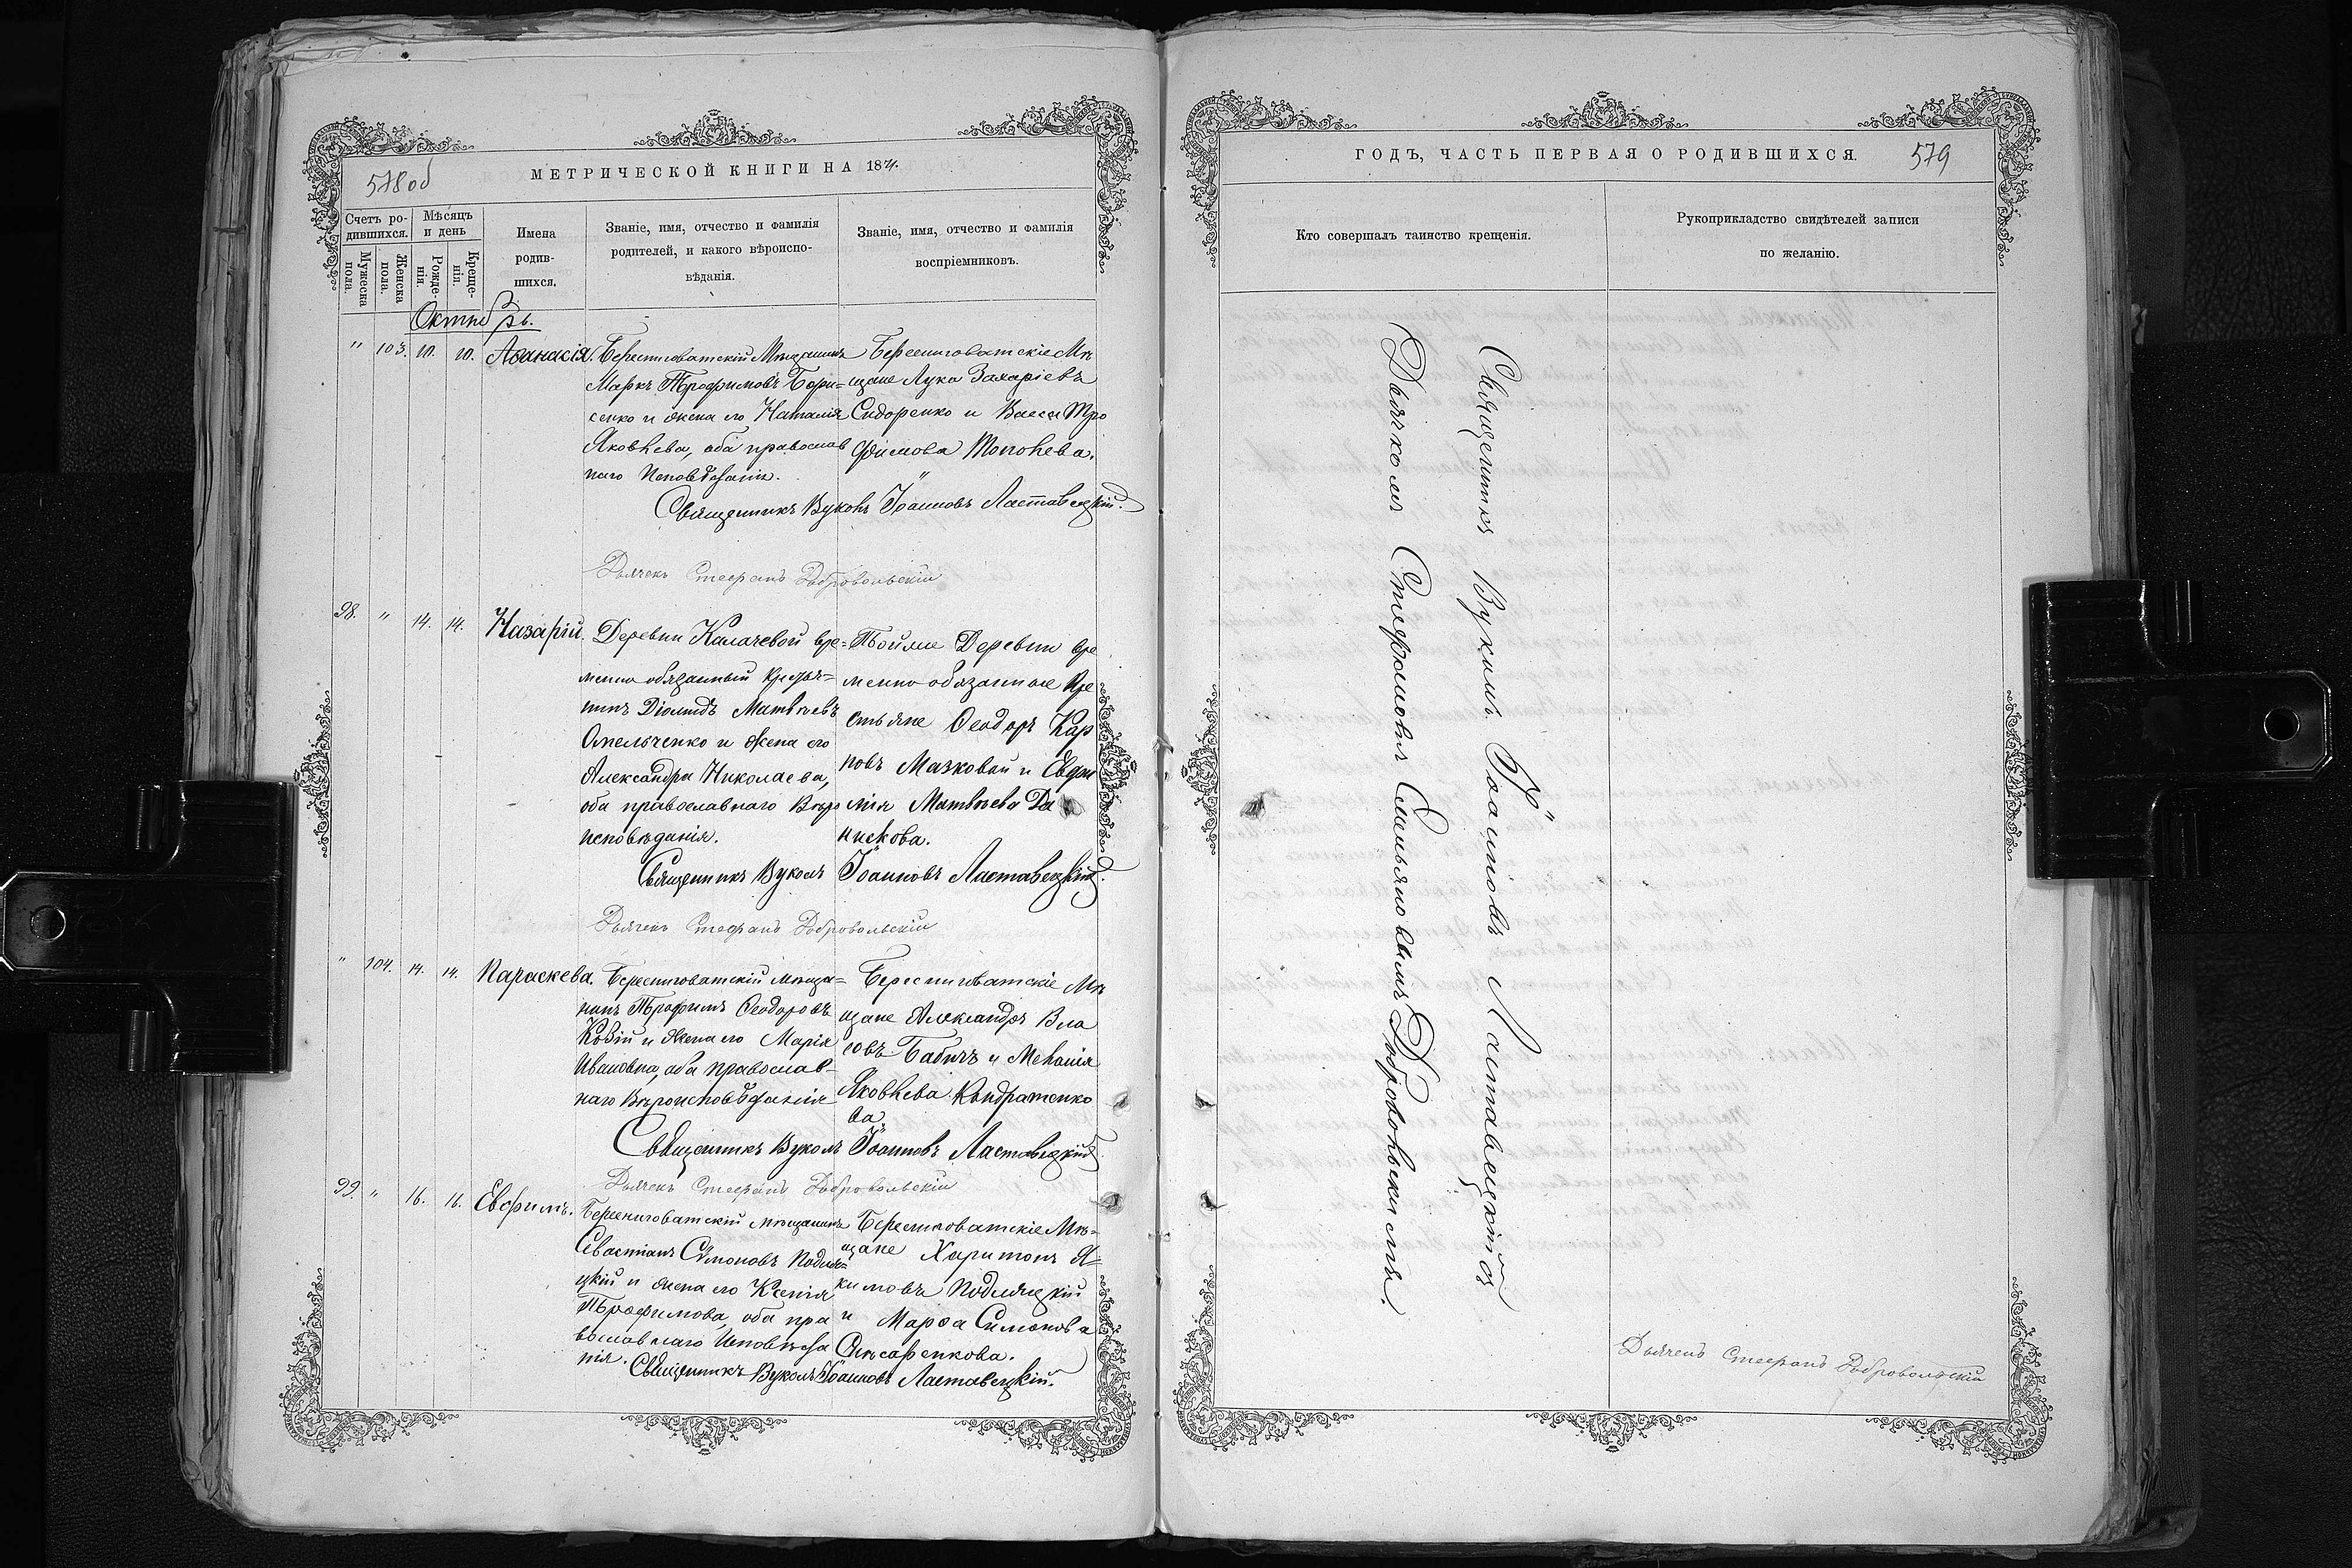 578 об
МЕТРИЧЕСКОЙ КНИГИ НА 1871.
Счетъ ро-
дившихся.
Мѣсяцъ
и день
Мужеска
пола.
Женска
пола.
Рожде-
нія.
Креще-
нія.
Имена
родив-
шихся.
Званіе, имя, отчество и фамилія
родителей, и какого вѣроиспо-
вѣданія.
Званіе, имя, отчество и фамилія
воспріемниковъ.
Октябрь.
" 103. 10. 10. Аѳанасія.
Берестоватскій Мѣщанинъ
Маркъ Трофимовъ Бори=
сенко и жена его Наталія
Яковлева, оба православ
наго Исповѣданія.
Берестоватскіе Мѣ
щане Лука Захаріевъ
Сидоренко и Васса Тро
фимова
Священникъ Вуколъ Іоанновъ Ластавецкій.
Дьячекъ Стефанъ Добровольскій
98. " 14. 14. Назарій.
Деревни Калачевой вре=
менно обязанный кресть=
нинъ Діомидъ Матвѣевъ
Омельченко и жена его
Александра Николаева,
оба православнаго Вѣро
исповѣданія.
Тойже Деревни вре
менно обязанные кре
стьяне Ѳеодоръ Кар
повъ Мазковой и Евфи
мія Матвѣева Да
нискова.
Священникъ Вуколъ Іоанновъ Ластавецкій.
Дьячекъ Стефанъ Добровольскій
" 104. 14. 14. Параскева.
Берестоватскій мѣща=
нинъ Трофимъ Ѳеодоровъ
и жена его Марія
Ивановна, оба православ-
наго Вѣроисповѣданія
Берестоватскіе Мѣ
щане Александръ Вла
совъ Бабичъ и Меланія
Яковлева Кондратенко
ва.
Священникъ Вуколъ Іоанновъ Ластавецкій.
Дьячекъ Стефанъ Добровольскій
99. " 16. 16. Евфимъ.
Берестоватскій мѣщанинъ
Севастіанъ Симоновъ Подля=
цкій и жена его Ксенія
Трофимова, оба пра
вославнаго Исповѣда
нія.
Берестоватскіе Мѣ=
щане Харитонъ Я=
кимовъ Подляцкій
и Марѳа Симонова
Слѣсаренкова.
Священникъ Вуколъ Іоанновъ Ластавецкій.
ГОДЪ, ЧАСТЬ ПЕРВАЯ О РОДИВШИХСЯ.
579
Кто совершалъ таинство крещенія.
Рукоприкладство свидѣтелей записи
по желанію.
Священникъ Вуколъ Іоанновъ Ластавецкій съ
Дьячкомъ Стефаномъ Емельяновымъ Добровольскимъ.
Дьячекъ Стефанъ Добровольскій